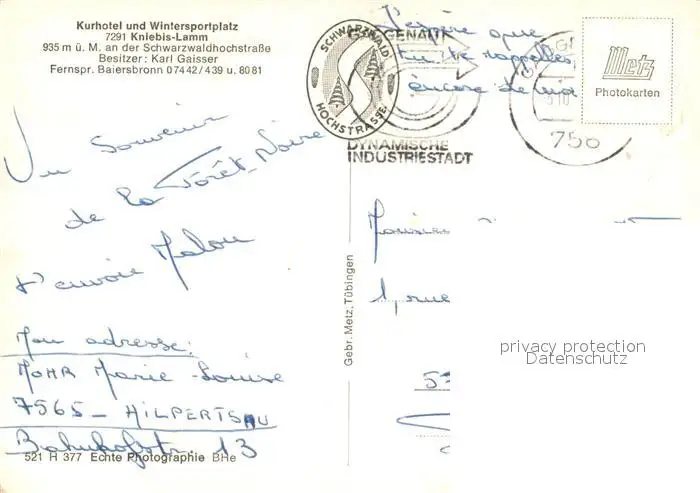 Kurhotel und Wintersportplatz
7291 Kniebis-Lamm
935 m ü. M. an der Schwarzwaldhochstraße
Besitzer: Karl Gaisser
Fernspr. Baiersbronn 07442/439 u. 8081
SCHWARZWALD
HOCHSTRASSE
GAGGENAU
DYNAMISCHE
INDUSTRIESTADT
756
J'espère que
tu te rappelles
encore de moi
Metz
Photokarten
Un Souvenir
de la Forêt-Noire
t'envoie Malou
Mon adresse:
MOHR Marie-Louise
7565 - HILPERTSAU
Bahnhofstr. 13
521 H 377 Echte Photographie BHe
Gebr. Metz, Tübingen
1, rue
privacy protection
Datenschutz